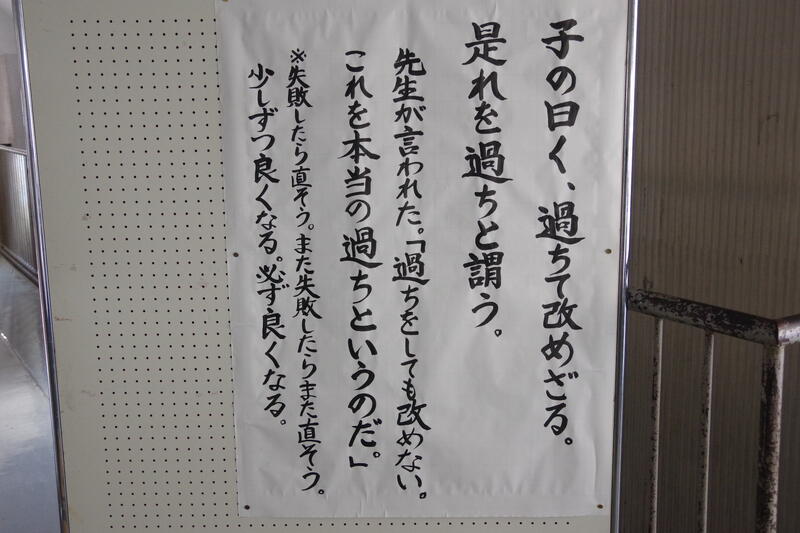 子の曰く、過ちて改めざる。
是れを過ちと謂う。
先生が言われた。「過ちをしても改めない。
これを本当の過ちというのだ。」
※失敗したら直そう。また失敗したらまた直そう。
少しずつ良くなる。必ず良くなる。